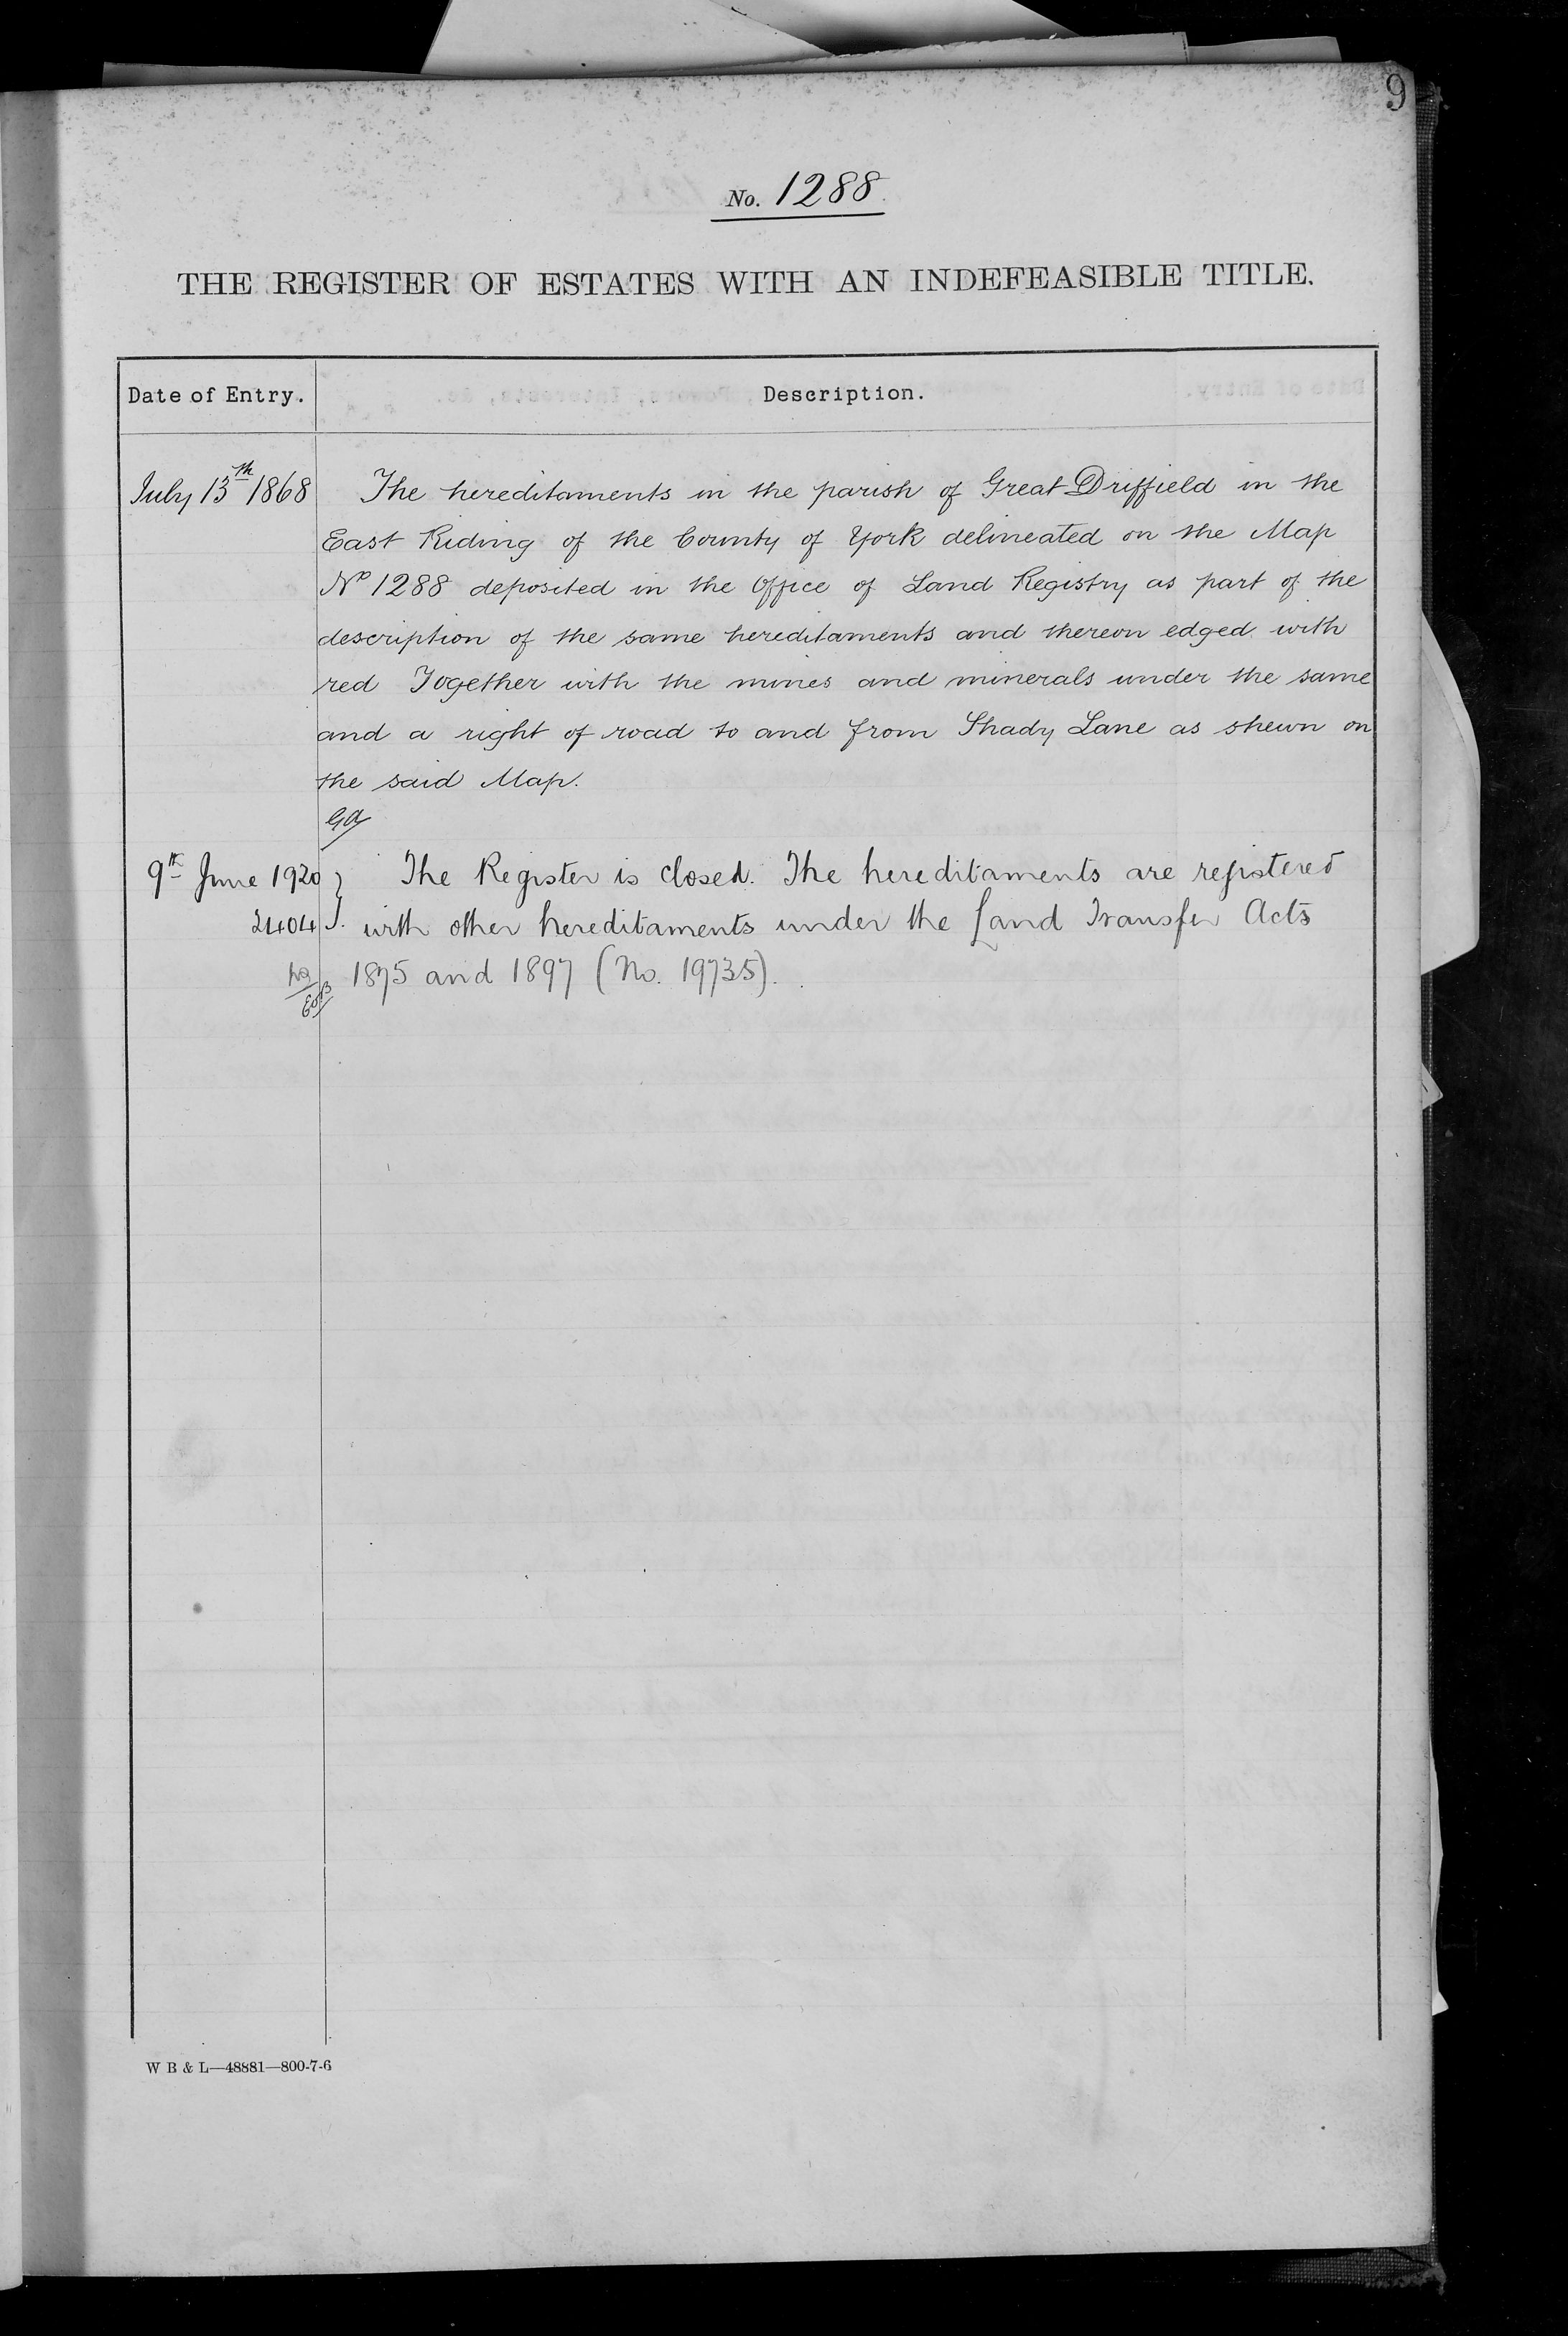 9
No. 1288
THE REGISTER OF ESTATES WITH AN INDEFEASIBLE TITLE.
Date of Entry. Description.
July 13th 1868 The hereditaments in the parish of Great Driffield in the
East Riding of the County of York delineated on the Map
No 1288 deposited in the Office of Land Registry as part of the
description of the same hereditaments and thereon edged with
red Together with the mines and minerals under the same
and a right of road to and from Shady Lane as shewn on
the said Map.
9th June 1920 The Register is closed. The hereditaments are registered
2404 with other hereditaments under the Land Transfer Acts
1875 and 1897 (No. 19735).
W B & L—48881—800-7-6